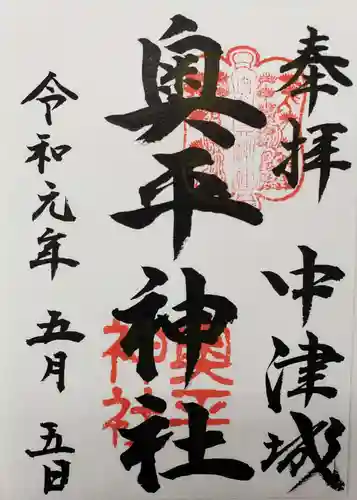 奉拝 中津城
奥平神社
令和元年 五月 五日
奥平神社